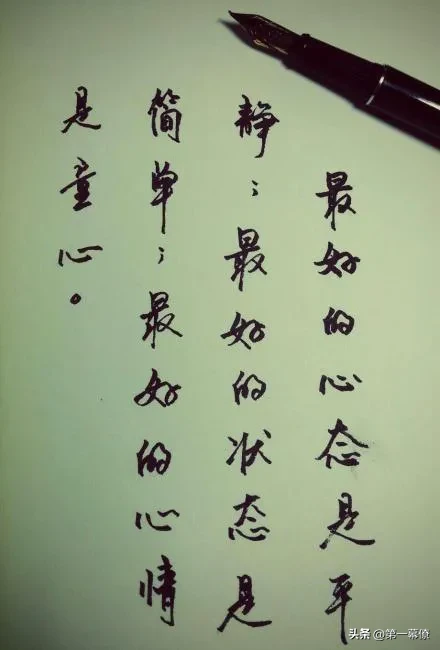 最好的心态是平
静；最好的状态是
简单；最好的心情
是童心。
头条 @第一幕僚